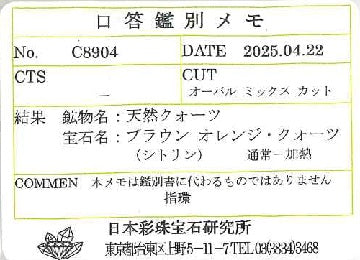 口答鑑別メモ
No. C8904 DATE 2025.04.22
CTS — CUT
オーバル ミックス カット
結果 鉱物名:天然クォーツ
宝石名:ブラウン オレンジ・クォーツ
(シトリン) 通常-加熱
COMMEN 本メモは鑑別書に代わるものではありません
指環
日本彩珠宝石研究所
東京都台東区上野5-11-7 TEL03(3834)3468